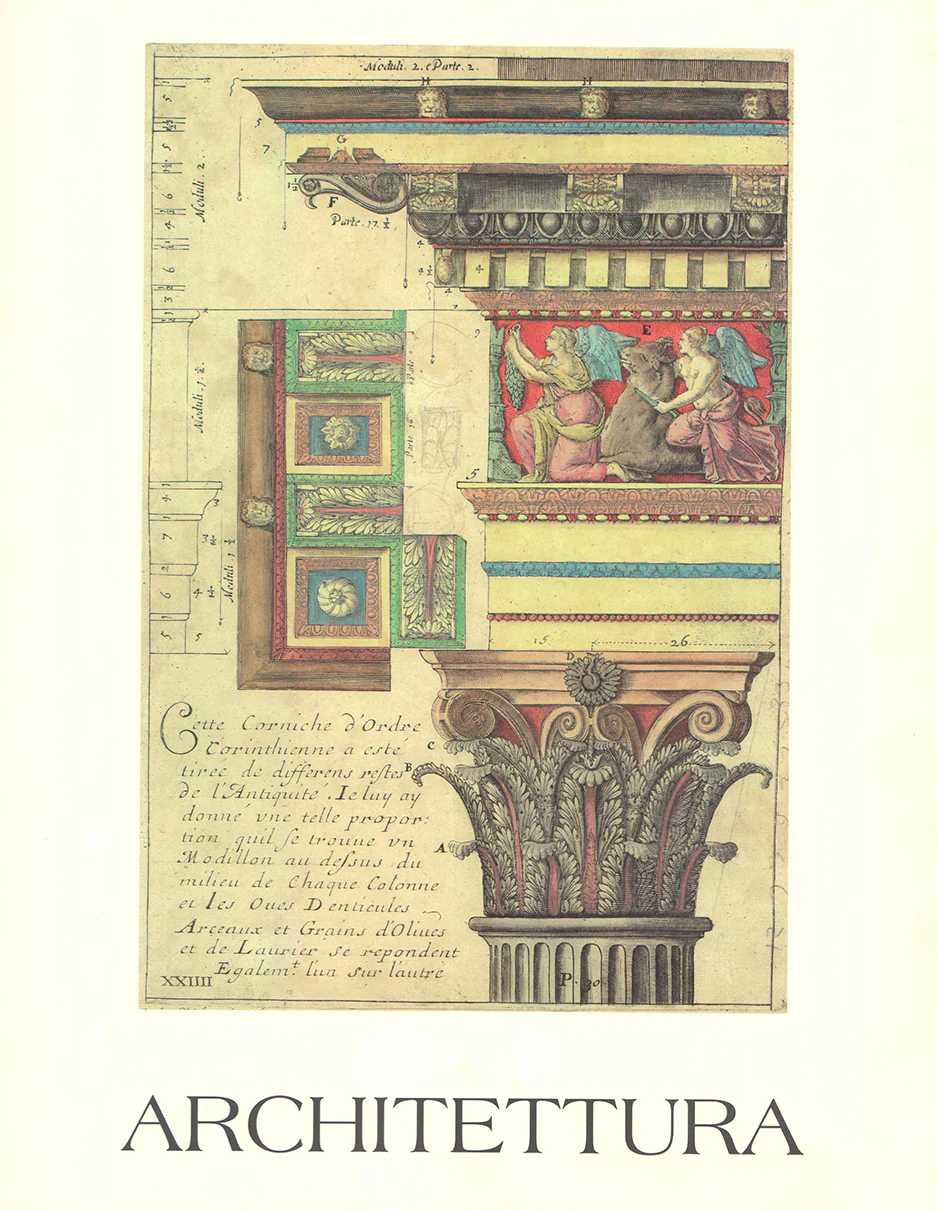 Moduli. 2. e Parte. 2.
H H
5
7
G
F
Parte. 17 ½
Moduli. 2.
5
5
6
4
6
3
4
4 ½
4
4
7
9
E
Moduli. 1. ½.
Parte 16
5
4
7
2
6
5
3
4
5
Moduli. 1 ½
15 26
D
C
B
A
Cette Corniche d'Ordre
Corinthienne a esté
tireé de differens restes
de l'Antiquité. Ie luy ay
donné vne telle propor:
tion quil se trouue vn
Modillon au dessus du
milieu de Chaque Colonne
et les Oues Denticules
Arçeaux et Grains d'Oliues
et de Laurier se repondent
Egalem.t l'un sur l'autre
XXIIII
P. 30
ARCHITETTURA